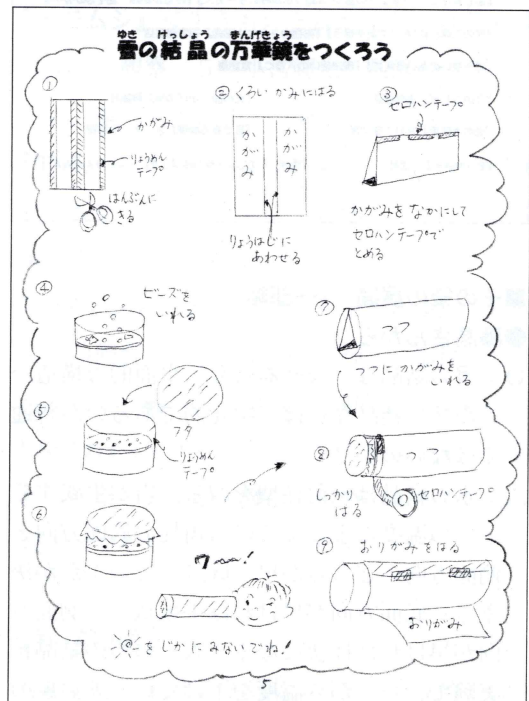 ゆき けっしょう まんげきょう
雪の結晶の万華鏡をつくろう
①
かがみ
りょうめん
テープ
はんぶんに
きる
② くろい かみにはる
かがみ
かがみ
りょうはじに
あわせる
③
セロハンテープ
かがみを なかにして
セロハンテープで
とめる
④
ビーズを
いれる
⑤
フタ
りょうめん
テープ
⑥
⑦
つつ
つつに かがみを
いれる
⑧
つつ
しっかり
はる
セロハンテープ
⑨ おりがみをはる
おりがみ
ワ〜〜!
をじかにみないでね!
5